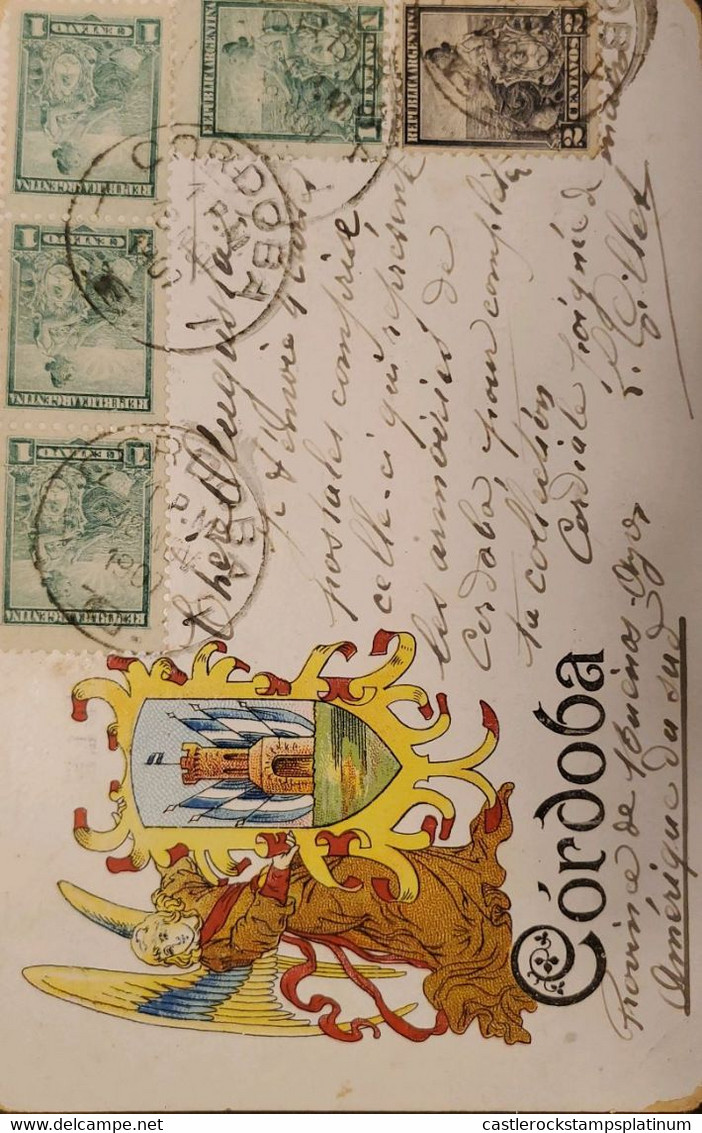 REPUBLICA ARGENTINA
1 CENTAVO 1
REPUBLICA ARGENTINA
1 CENTAVO 1
REPUBLICA ARGENTINA
1 CENTAVO 1
REPUBLICA ARGENTINA
1
REPUBLICA ARGENTINA
2 CENTAVOS 2
CORDOBA
Cher
je t'envoie
postales comprise
celle-ci qui représente
les armoiries de
Cordoba, pour compléter
ta collection
Cordiale poignée de main
Córdoba
Province de Buenos-Ayres
Amérique du sud
castlerockstampsplatinum